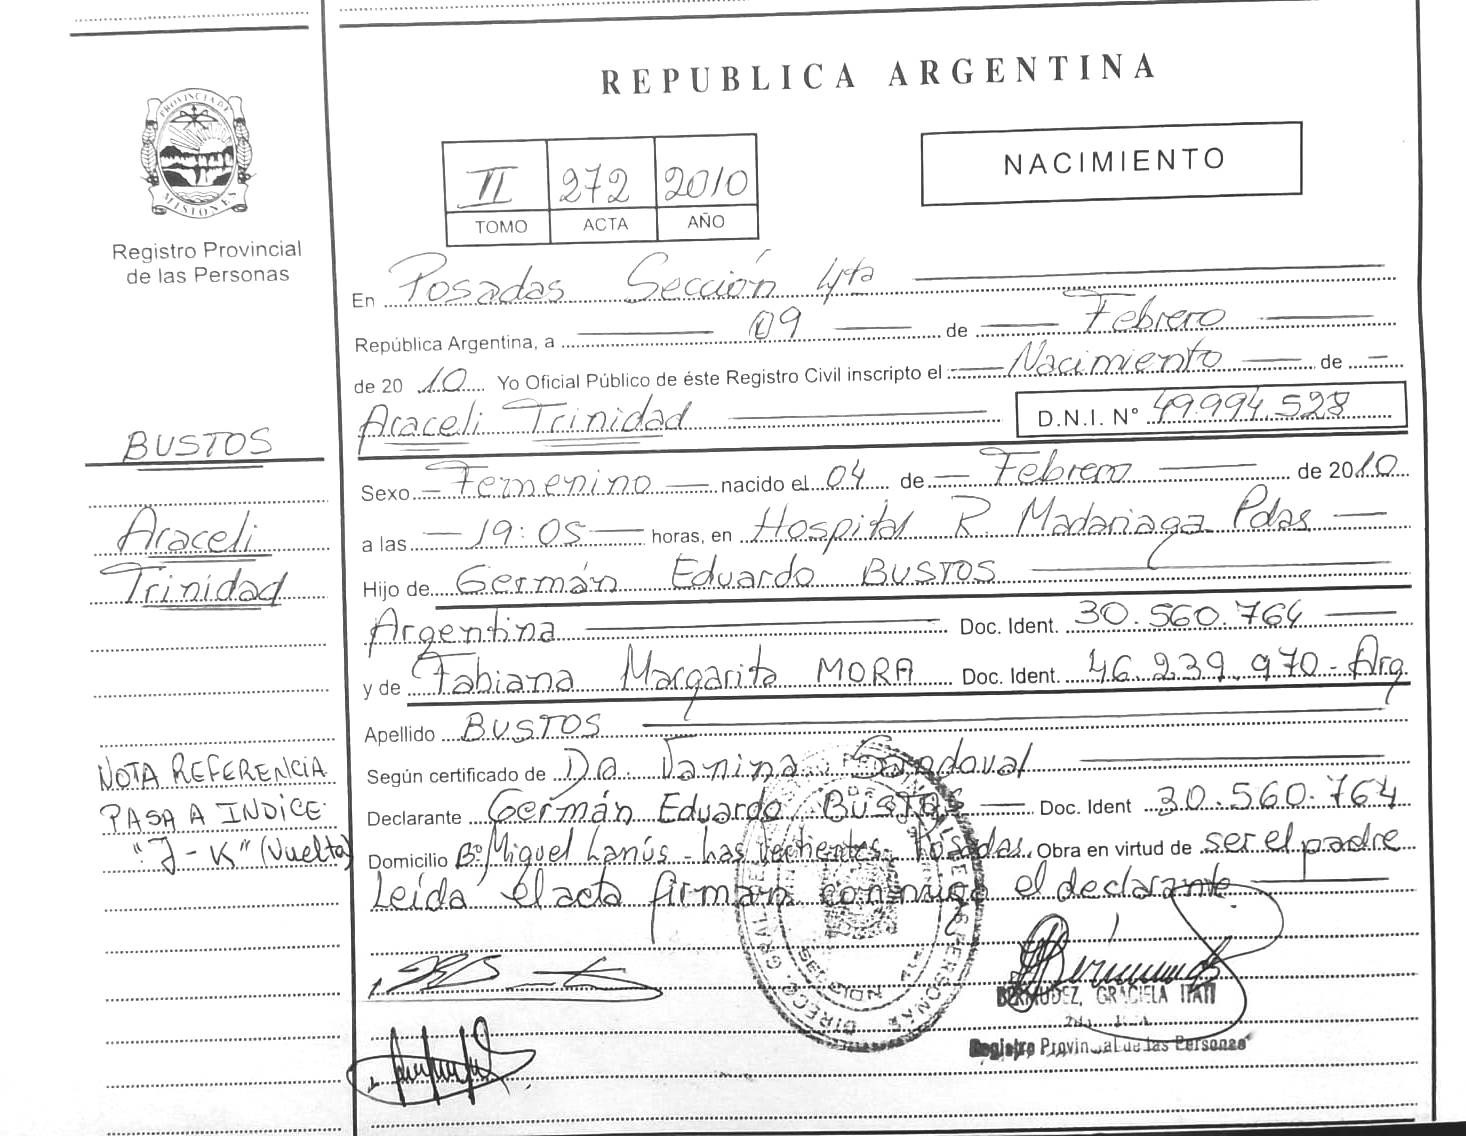 REPUBLICA ARGENTINA
PROVINCIA DE
MISIONES
Registro Provincial
de las Personas
II 272 2010
TOMO ACTA AÑO
NACIMIENTO
En Posadas Sección 4ta
República Argentina, a 09 de Febrero
de 2010 Yo Oficial Público de éste Registro Civil inscripto el Nacimiento de
Araceli Trinidad D.N.I. N° 49.994.528
BUSTOS
Araceli
Trinidad
Sexo Femenino nacido el 04 de Febrero de 2010
a las 19:05 horas, en Hospital R. Madariaga Pdas
Hijo de Germán Eduardo BUSTOS
Argentina Doc. Ident. 30.560.764
y de Fabiana Margarita MORA Doc. Ident. 46.239.970- Arg.
Apellido BUSTOS
Según certificado de Da. Vanina Sandoval
Declarante Germán Eduardo BUSTOS Doc. Ident 30.560.764
Domicilio Bº Miguel Lanús - Las Vertientes- Posadas. Obra en virtud de ser el padre
Leída el acta firman conmigo el declarante
NOTA REFERENCIA
PASA A INDICE
"J-K" (Vuelta)
BERMUDEZ, GRACIELA ITATI
Registro Provincial de las Personas